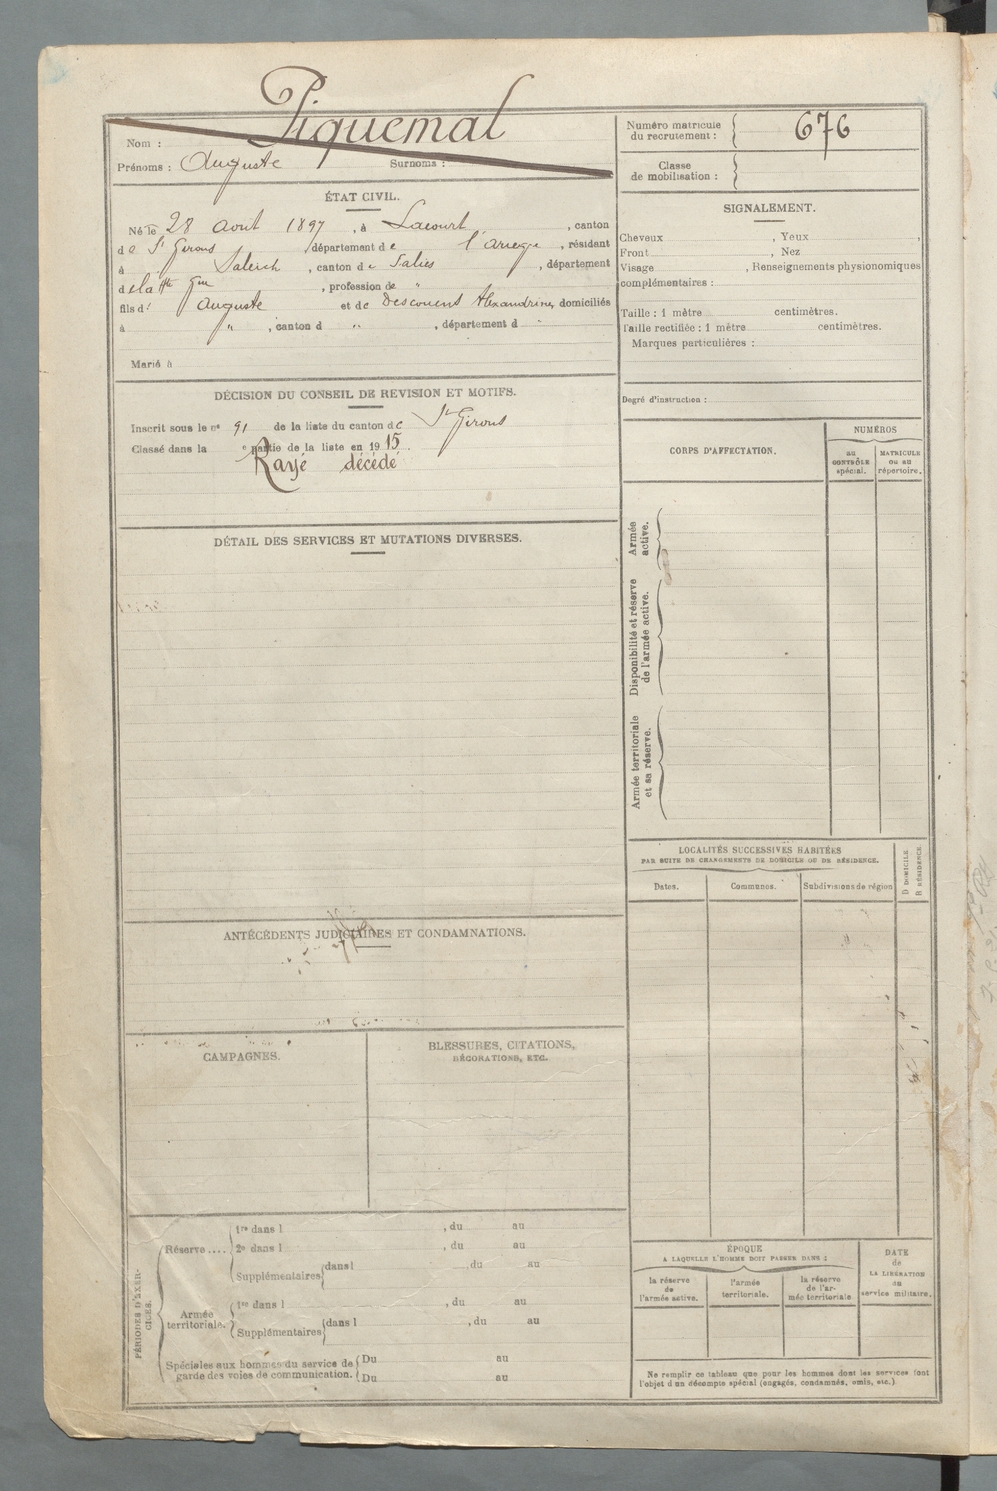 Piquemal
Nom :
Prénoms : Auguste Surnoms :
Numéro matricule
du recrutement : 676
Classe
de mobilisation :
ÉTAT CIVIL.
Né le 28 aout 1897, à Lacourt, canton
de St Girons département de l'ariege, résidant
à Saleich, canton de Salies, département
de la Hte Gne, profession de "
fils d' Auguste et de Descouens Alexandrine, domiciliés
à ", canton d ", département d "
Marié à
SIGNALEMENT.
Cheveux , Yeux ,
Front , Nez
Visage , Renseignements physionomiques
complémentaires :
Taille : 1 mètre centimètres.
Taille rectifiée : 1 mètre centimètres.
Marques particulières :
Degré d'instruction :
DÉCISION DU CONSEIL DE REVISION ET MOTIFS.
Inscrit sous le n° 91 de la liste du canton de St Girons
Classé dans la e partie de la liste en 1915.
Rayé décédé
CORPS D'AFFECTATION.
NUMÉROS
au
CONTRÔLE
spécial.
MATRICULE
ou au
répertoire.
Armée
active.
Disponibilité et réserve
de l'armée active.
Armée territoriale
et sa réserve.
DÉTAIL DES SERVICES ET MUTATIONS DIVERSES.
LOCALITÉS SUCCESSIVES HABITÉES
PAR SUITE DE CHANGEMENTS DE DOMICILE OU DE RÉSIDENCE.
Dates.
Communes.
Subdivisions de région
D DOMICILE.
R RÉSIDENCE.
ANTÉCÉDENTS JUDICIAIRES ET CONDAMNATIONS.
CAMPAGNES.
BLESSURES, CITATIONS,
DÉCORATIONS, ETC.
PÉRIODES D'EXER-
CICES.
Réserve ....
1re dans l , du au
2e dans l , du au
Supplémentaires dans l , du au
Armée
territoriale.
1re dans l , du au
Supplémentaires dans l , du au
Spéciales aux hommes du service de
garde des voies de communication.
Du au
Du au
ÉPOQUE
A LAQUELLE L'HOMME DOIT PASSER DANS :
la réserve
de
l'armée active.
l'armée
territoriale.
la réserve
de l'ar-
mée territoriale
DATE
de
LA LIBÉRATION
du
service militaire.
Ne remplir ce tableau que pour les hommes dont les services font
l'objet d'un décompte spécial (engagés, condamnés, omis, etc.)